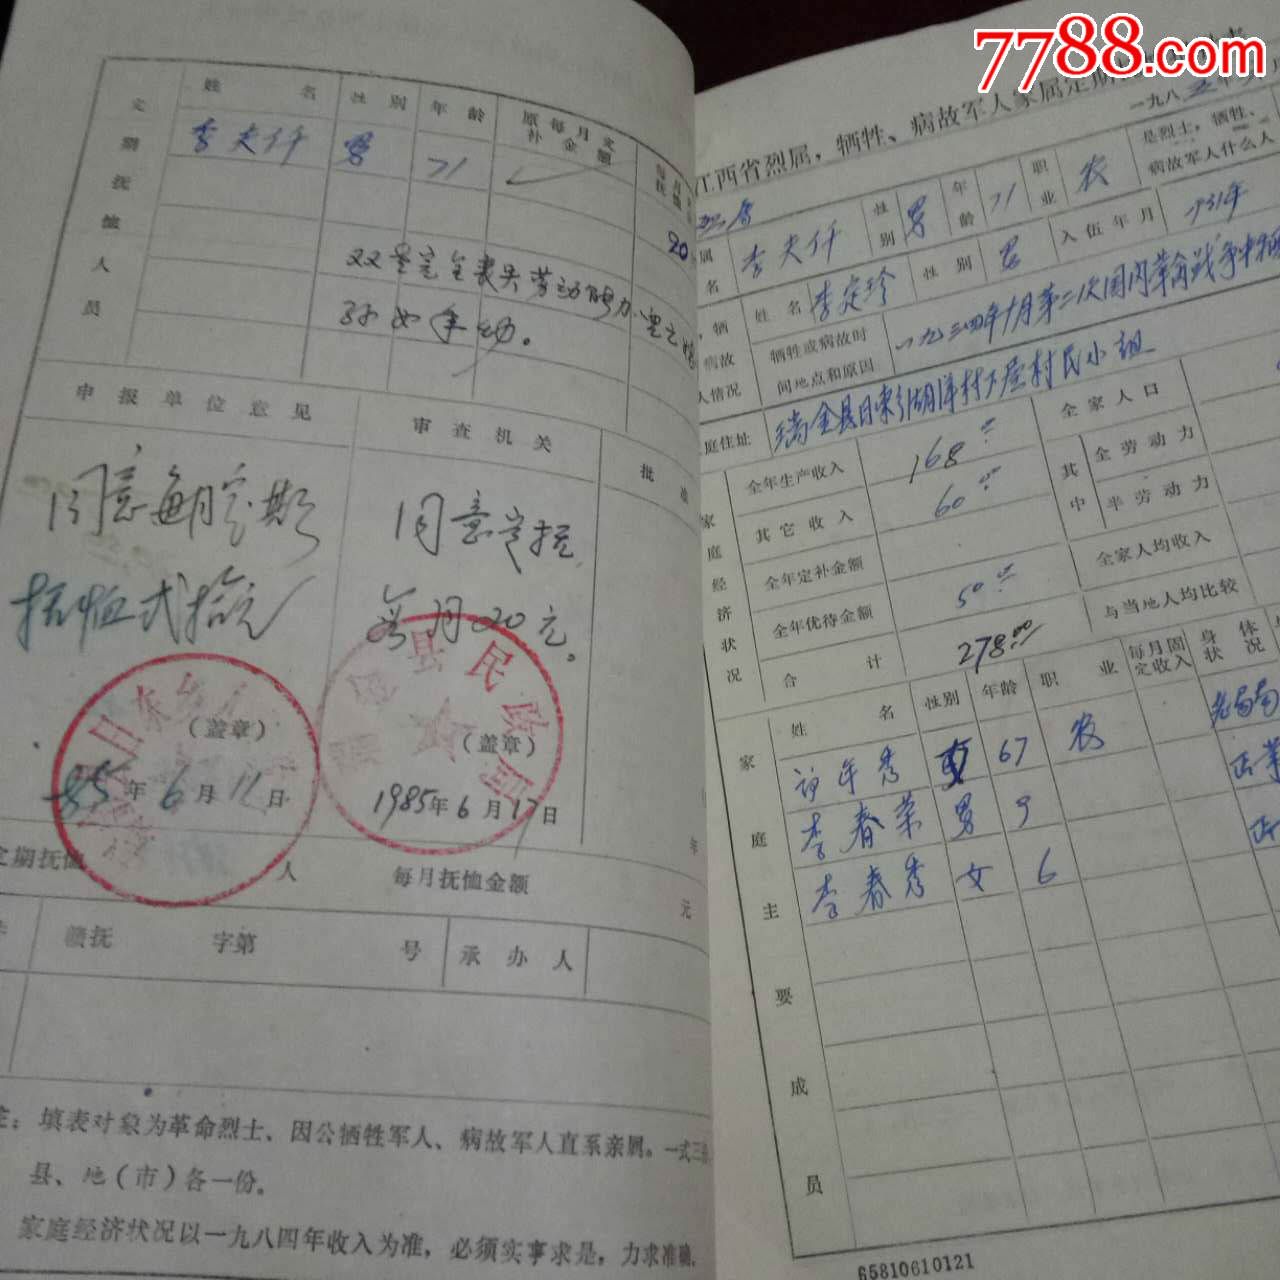 7788.com
姓名 性别 年龄 原每月定补金额
李夫仟 男 71
20
定期抚恤人员
22是完全丧失劳动能力
孙女年幼。
申报单位意见 审查机关 批准
同意每月定期
抚恤弍拾元
同意定抚
每月20元。
县民政局
(盖章) (盖章)
85年6月11日 1985年6月17日
年
定期抚恤 人 每月抚恤金额 元
赣抚 字第 号 承办人
填表对象为革命烈士、因公牺牲军人、病故军人直系亲属。一式三
县、地(市)各一份。
家庭经济状况以一九八四年收入为准,必须实事求是,力求准确.
江西省烈属,牺牲、病故军人家属定期
一九八五年
属名 李夫仟 性别 男 年龄 71 职业 农 是烈士,牺牲、病故军人什么人
姓名 李定珍 性别 男 入伍年月 1931年
牺牲或病故时间地点和原因 一九三四年十月第二次国内革命战争中
庭住址 瑞金县日东乡湖洋村下屋村民小组
家庭经济状况
全年生产收入 168 全家人口
其它收入 60 其中 全劳动力
全年定补金额 半劳动力
全年优待金额 50 全家人均收入
合计 278.00 与当地人均比较
家庭主要成员
姓名 性别 年龄 职业 每月固定收入 身体状况
年秀 女 67 农
李春荣 男 9
李春秀 女 6
65810610121